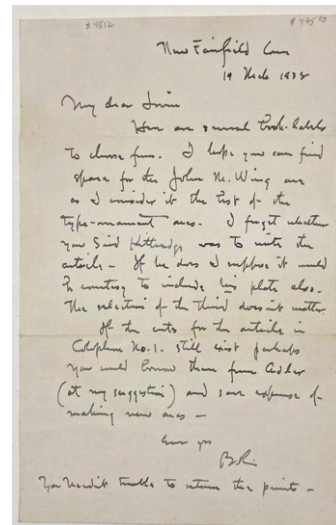 #4512 $475.00
New Fairfield Conn
19 1938
My dear Irvin
Here are several book-labels
to choose from. I hope you can find
space for the John M. Wing one
as I consider it the best of the
type-ornament ones. I forget whether
you said Kittredge was to write the
article – If he does I suppose it would
be courtesy to include his plate also.
The selection of the third doesn't matter
If the cuts for the article in
Colophon No. 1. still exist perhaps
you could borrow them from Adler
(at my suggestion) and save expense of
making new ones –
Ever yrs
You needn't trouble to return the prints –